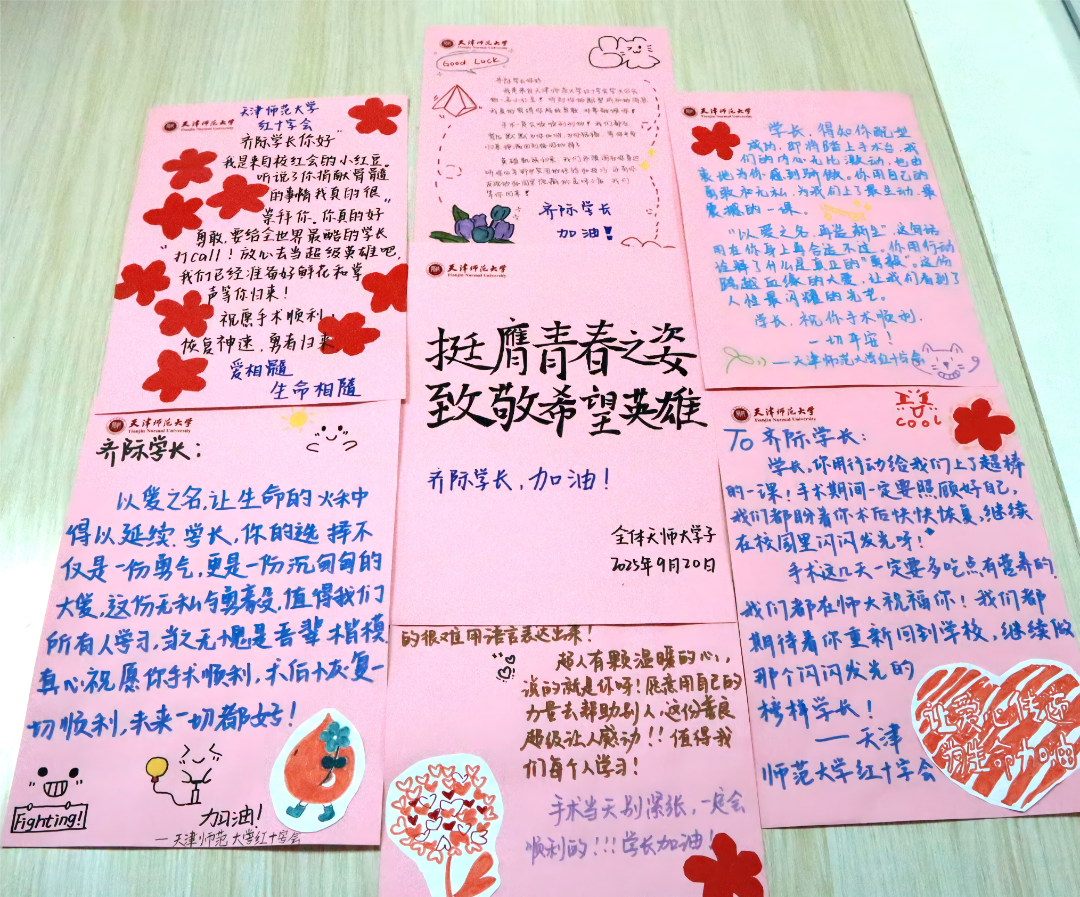 天津师范大学
Tianjin Normal University
Good Luck
齐际学长
加油！
天津师范大学
红十字会
齐际学长你好
我是来自校红会的小红豆.
听说了你捐献骨髓
的事情我真的很
崇拜你.你真的好
勇敢,要给全世界最酷的学长
打call！放心去当超级英雄吧,
我们已经准备好鲜花和掌
声等你归来！
祝愿手术顺利,
恢复神速,勇者归来
爱相髓
生命相随
天津师范大学
学长,得知你配型
成功,即将踏上手术台,我
们的内心无比激动,也由
衷地为你感到骄傲。你用自己的
勇敢和无私,为我们上了最生动、最
震撼的一课。
“以爱之名,再造新生”,这句话
用在你身上再合适不过。你用行动
诠释了什么是真正的“勇报”。这份
跨越血缘的大爱,让我们看到了
人性最闪耀的光芒。
学长,祝你手术顺利,
一切平安！
—天津师范大学红十字会
天津师范大学
Tianjin Normal University
挺膺青春之姿
致敬希望英雄
齐际学长,加油！
全体天师大学子
2025年9月20日
天津师范大学
Tianjin Normal University
齐际学长：
以爱之名,让生命的火种
得以延续.学长,你的选择不
仅是一份勇气,更是一份沉甸甸的
大爱,这份无私与勇毅,值得我们
所有人学习,当之无愧是吾辈楷模
真心祝愿你手术顺利,术后恢复一
切顺利,未来一切都好！
Fighting!
加油！
—天津师范大学红十字会
天津师范大学
Tianjin Normal University
COOL
To 齐际学长：
学长,你用行动给我们上了超棒
的一课！手术期间一定要照顾好自己,
我们都盼着你术后快快恢复,继续
在校园里闪闪发光呀！
手术这几天一定要多吃点有营养的,
我们都在师大祝福你！我们都
期待着你重新回到学校,继续做
那个闪闪发光的
榜样学长！
—天津
师范大学红十字会
让爱心传递
为生命加油
的很难用语言表达出来！
超人有颗温暖的心,
说的就是你呀！愿意用自己的
力量去帮助别人,这份善良
超级让人感动！！值得我
们每个人学习！
手术当天别紧张,一定会
顺利的！！！学长加油！